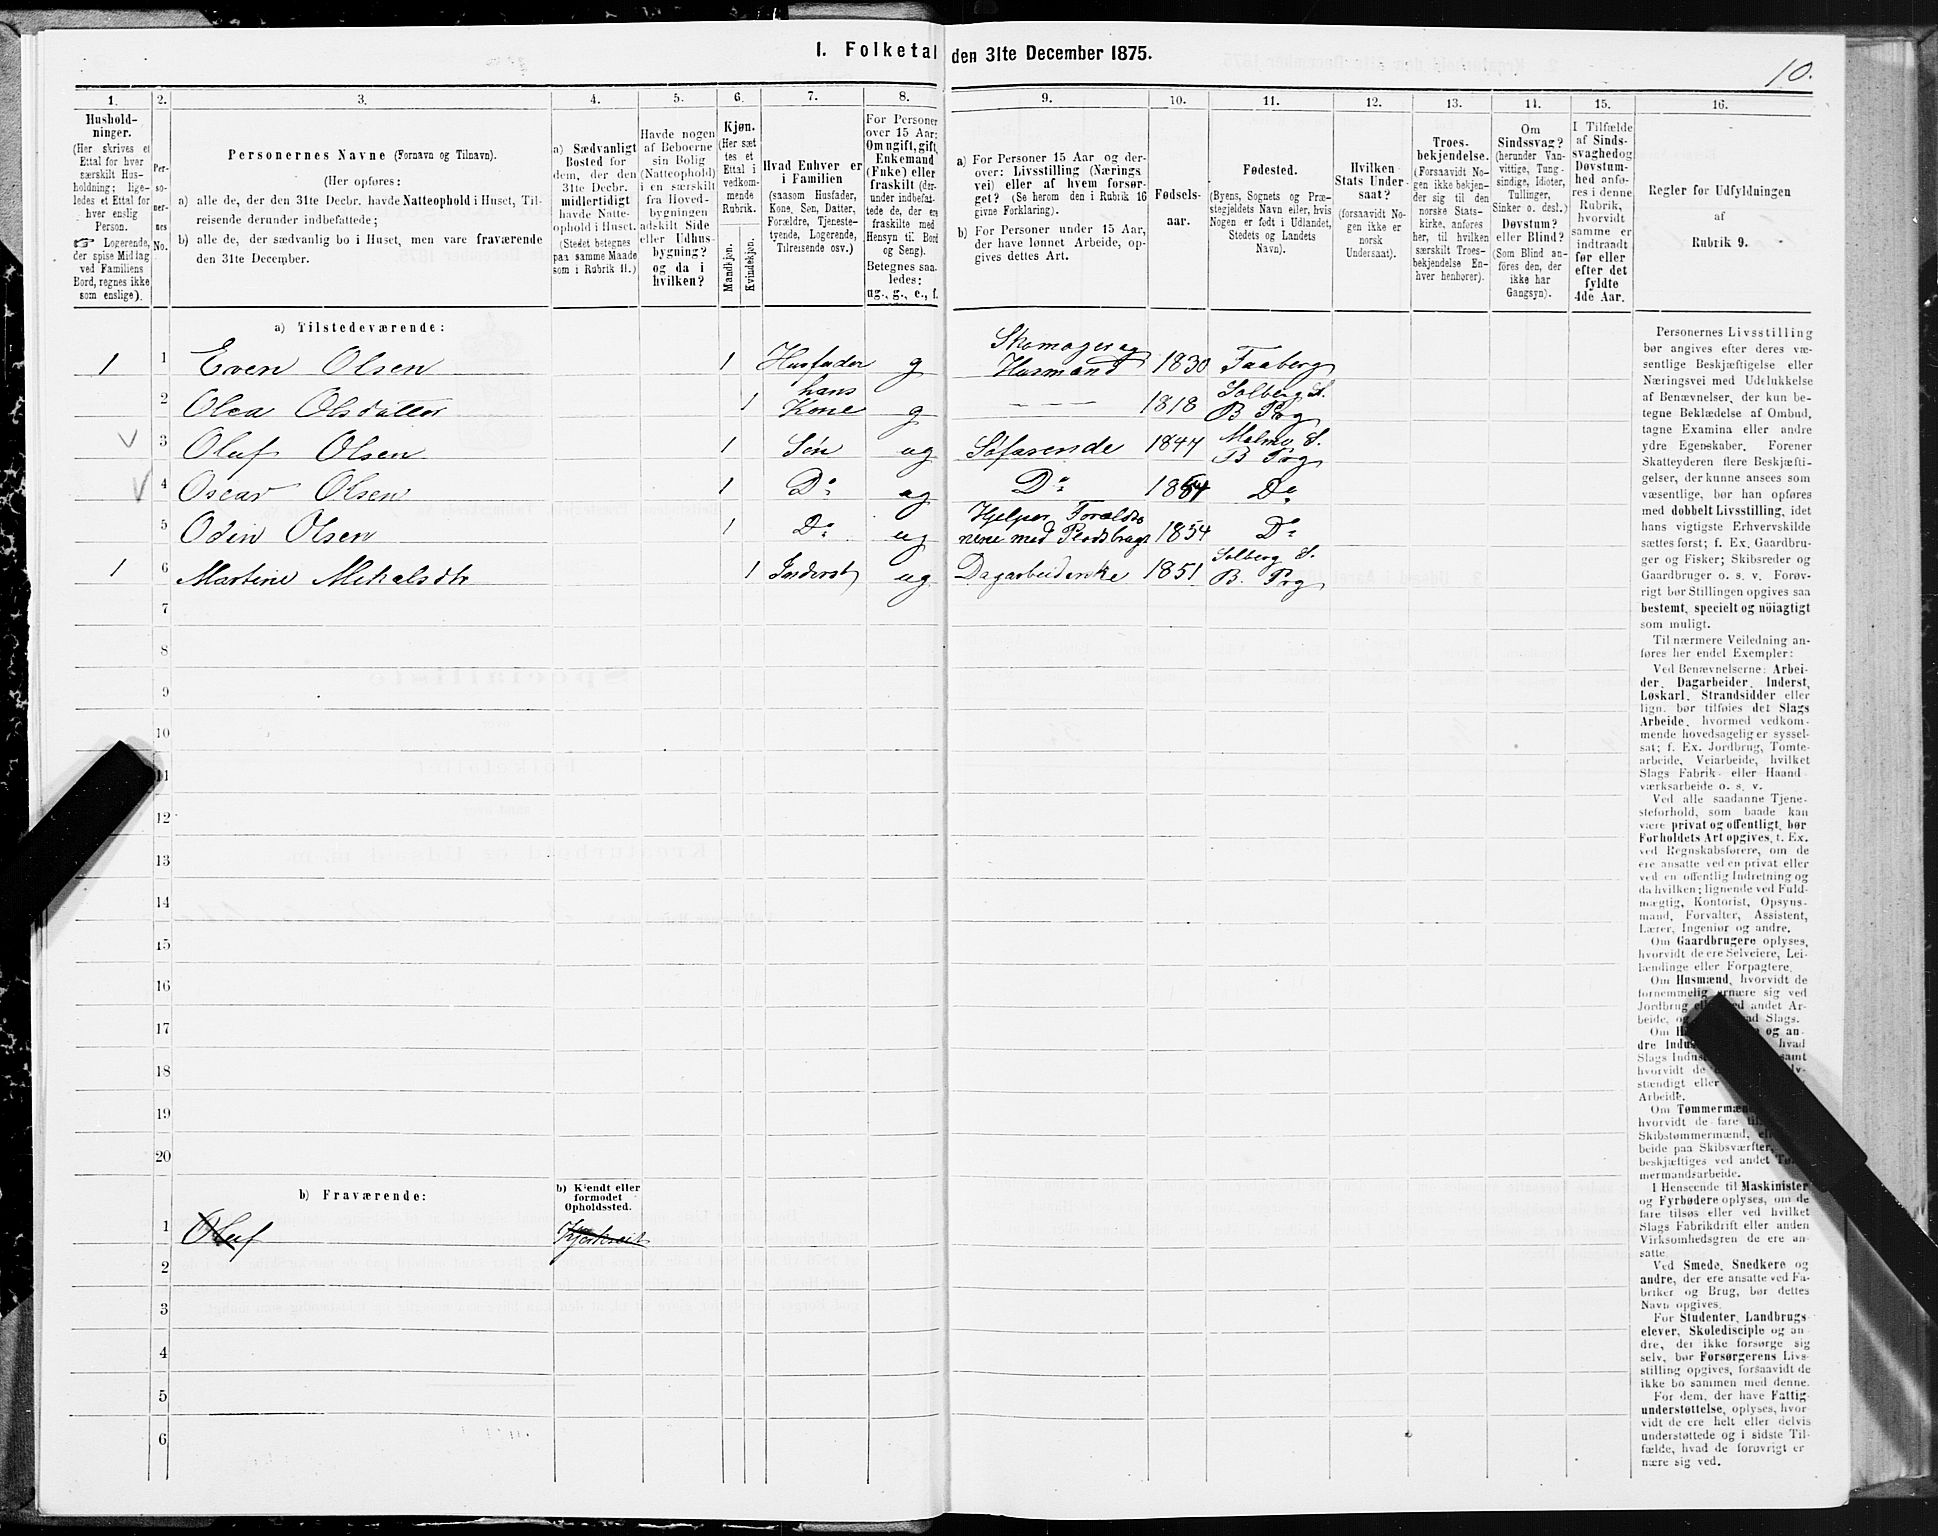 I. Folketal den 31te December 1875.
10.
1.
Hushold-
ninger.
(Her skrives et
Ettal for hver
særskilt Hus-
holdning; lige-
ledes et Ettal for
hver enslig
Person.
☞ Logerende,
der spise Middag
ved Familiens
Bord, regnes ikke
som enslige).
2.
Per-
so-
ner-
nes
No.
3.
Personernes Navne (Fornavn og Tilnavn).
(Her opføres:
a) alle de, der den 31te Decbr. havde Natteophold i Huset, Til-
reisende derunder indbefattede;
b) alle de, der sædvanlig bo i Huset, men vare fraværende
den 31te December.
4.
a) Sædvanligt
Bosted for
dem, der den
31te Decbr.
midlertidigt
havde Natte-
ophold i Huset.
(Stedet betegnes
paa samme Maade
som i Rubrik 11.)
5.
Havde nogen
af Beboerne
sin Bolig
(Natteophold)
i en særskilt
fra Hoved-
bygningen
adskilt Side
eller Udhus-
bygning?
og da i
hvilken?
6.
Kjøn.
(Her sæt
tes et
Ettal i
vedkom-
mende
Rubrik.
Mandkjøn.
Kvindekjøn.
7.
Hvad Enhver er
i Familien
(saasom Husfader,
Kone, Søn, Datter,
Forældre, Tjeneste-
tyende, Logerende,
Tilreisende osv.)
8.
For Personer
over 15 Aar:
Om ugift, gift,
Enkemand
(Enke) eller
fraskilt (der-
under indbefat-
tede de, der ere
fraskilte med
Hensyn til Bord
og Seng).
Betegnes saa-
ledes:
ug., g., e., f.
9.
a) For Personer 15 Aar og der-
over: Livsstilling (Nærings
vei) eller af hvem forsør-
get? (Se herom den i Rubrik 16
givne Forklaring).
b) For Personer under 15 Aar,
der have lønnet Arbeide, op-
gives dettes Art.
10.
Fødsels-
aar.
11.
Fødested.
(Byens, Sognets og Præ-
stegjeldets Navn eller, hvis
Nogen er født i Udlandet,
Stedets og Landets
Navn).
12.
Hvilken
Stats Under-
saat?
(forsaavidt No-
gen ikke er
norsk
Undersaat).
13.
Troes-
bekjendelse.
(Forsaavidt No-
gen ikke bekjen-
der sig til den
norske Stats-
kirke, anføres
her, til hvilken
særskilt Troes-
bekjendelse En-
hver henhører).
14.
Om
Sindssvag?
(herunder Van-
vittige, Tung-
sindige, Idioter,
Tullinger,
Sinker o. desl.)
Døvstum?
eller Blind?
(Som Blind an-
føres den, der
ikke har
Gangsyn).
15.
I Tilfælde
af Sinds-
svaghedog
Døvstum-
hed anfø-
res i denne
Rubrik,
hvorvidt
samme er
indtraadt
før eller
efter det
fyldte
4de Aar.
16.
Regler for Udfyldningen
af
Rubrik 9.
a) Tilstedeværende:
1 1 Even Olsen 1 Husfader g Skomager og Husmand 1830 Faaberg
2 Olea Olsdatter 1 hans Kone g — — — 1818 Solberg S. B Pog
V 3 Oluf Olsen 1 Søn ug Søfarende 1844 Malmo S. B Pog
V 4 Oscar Olsen 1 Do ug Do 1864 Do
5 Odin Olsen 1 Do ug Hjelper Forældre nene med 1854 Do
1 6 Martine Mikalsdtr 1 Inderst ug Dagarbeiderske 1851 Solberg S. B. Pog
7
8
9
10
11
12
13
14
15
16
17
18
19
20
b) Fraværende:
b) Kjendt eller
formodet
Opholdssted.
1 Oluf
2
3
4
5
6
Personernes Livsstilling
bør angives efter deres væ-
sentlige Beskjæftigelse eller
Næringsvei med Udelukkelse
af Benævnelser, der kun be-
tegne Beklædelse af Ombud,
tagne Examina eller andre
ydre Egenskaber. Forener
Skatteyderen flere Beskjæfti-
gelser, der kunne ansees som
væsentlige, bør han opføres
med dobbelt Livsstilling, idet
hans vigtigste Erhvervskilde
sættes først; f. Ex. Gaardbru-
ger og Fisker; Skibsreder og
Gaardbruger o. s. v. Forøv-
rigt bør Stillingen opgives saa
bestemt, specielt og nöiagtigt
som muligt.
Til nærmere Veiledning an-
føres her endel Exempler:
Ved Benævnelserne: Arbei-
der, Dagarbeider, Inderst,
Løskarl, Strandsidder eller
lign. bør tilføies det Slags
Arbeide, hvormed vedkom-
mende hovedsagelig er syssel-
sat; f. Ex. Jordbrug, Tomte-
arbeide, Veiarbeide, hvilket
Slags Fabrik- eller Haand-
værksarbeide o. s. v.
Ved alle saadanne Tjene-
steforhold, som baade kan
være privat og offentligt, bør
Forholdets Art opgives, t. Ex.
ved Regnskabsførere, om de
ere ansatte ved en privat eller
ved en offentlig Indretning og
da hvilken; lignende ved Fuld-
mægtig, Kontorist, Opsyns-
mand, Forvalter, Assistent,
Lærer, Ingeniør og andre.
Om Gaardbrugere oplyses,
hvorvidt de ere Selveiere, Lei-
lændinge eller Forpagtere.
Om Husmænd, hvorvidt de
fornemmelig ernære sig ved
Jordbrug eller ved andet Ar-
beide, og Slags.
Om og an-
dre hvad
Slags samt
hvorvidt de
stændigt eller
Arbeide.
Om Tømmermænd
hvorvidt de fare
Skibstømmermænd,
beide paa Skibsværfter,
beskjæftiges ved andet
mermandsarbeide.
I Henseende til Maskinister
og Fyrbødere oplyses, om de
fare tilsøs eller ved hvilket
Slags Fabrikdrift eller anden
Virksomhedsgren de ere an-
satte.
Ved Smede, Snedkere og
andre, der ere ansatte ved Fa-
briker og Brug, bør dettes
Navn opgives.
For Studenter, Landbrugs-
elever, Skoledisciple og an-
dre, der ikke forsørge sig
selv, bør Forsørgerens Livs-
stilling opgives, forsaavidt de
ikke bo sammen med denne.
For dem, der have Fattig-
understøttelse, oplyses, hvor-
vidt de ere helt eller delvis
understøttede og i sidste Til-
fælde, hvad de forøvrigt er-
nære sig ved.